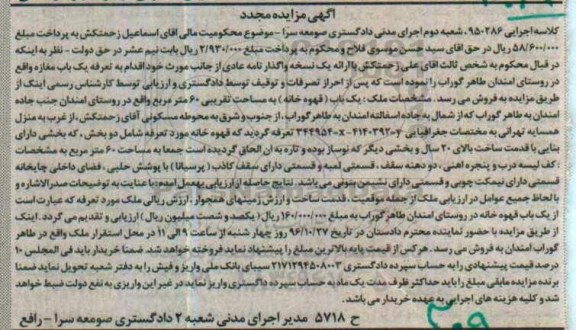 آگهی مزایده مجدد
کلاسه اجرایی ۹۵۰۲۸۶ ، شعبه دوم اجرای مدنی دادگستری صومعه سرا - موضوع محکومیت مالی آقای اسماعیل زحمتکش به پرداخت مبلغ
۵۸/۶۰۰/۰۰۰ ریال در حق آقای سید حسن موسوی فلاح و محکوم به پرداخت مبلغ ۲/۹۳۰/۰۰۰ ریال بابت نیم عشر در حق دولت - نظر به اینکه
در قبال محکوم به شخص ثالث آقای علی زحمتکش با ارائه یک نسخه واگذار نامه عادی از جانب مورث خود اقدام به تعرفه یک باب مغازه واقع
در روستای امندان طاهر گوراب را نموده است که پس از احراز تصرفات و توقیف توسط دادگستری و ارزیابی توسط کارشناس رسمی اینک از
طریق مزایده به فروش می رسد. مشخصات ملک : یک باب ( قهوه خانه ) به مساحت تقریبی ۶۰ متر مربع واقع در روستای امندان جنب جاده
امندان به طاهر گوراب که از شمال به جاده آسفالته امندان به طاهر گوراب ، از جنوب و شرق به محوطه مسکونی آقای زحمتکش ، از غرب به منزل
همسایه تهرانی به مختصات جغرافیایی ۴۱۴۰۳۹۲-y ۳۴۴۹۵۴۰-x تعرفه گردید که قهوه خانه مورد تعرفه شامل دو بخش ، که بخشی دارای
بنایی با قدمت ساخت بالای ۲۰ سال و بخشی دیگر که نوساز بوده و تازه به ان الحاق گردیده است جمعا به مساحت ۶۰ متر مربع به مشخصات
: کف لیسه درب و پنجره آهنی ، دو دهنه سقف ، قسمتی لمبه و قسمتی دارای سقف کاذب ( پرسیانا ) با پوشش حلبی ، فضای داخلی چایخانه
قسمتی دارای نیمکت چوبی و قسمتی دارای نشیمن بتونی می باشد . نتایج حاصله از ارزیابی بهعمل آمده با عنایت به توضیحات صدرالاشاره و
با لحاظ جمیع عوامل در ارزیابی ملک از جمله موقعیت ، قدمت ساخت و ارزش زمینهای همجوار ، ارزش ریالی ملک مورد تعرفه که عبارت است
از یک باب قهوه خانه در روستای امندان طاهر گوراب به مبلغ ۱۶۰/۰۰۰/۰۰۰ ریال ( یکصد و شصت میلیون ریال ) ارزیابی و تقدیم می گردد . اینک
از طریق مزایده با حضور نماینده محترم دادستان در تاریخ ۹۶/۱۰/۲۷ روز چهار شنبه از ساعت ۹ الی ۱۱ در محل استقرار ملک واقع در طاهر
گوراب امندان به فروش می رسد . هر کس از قیمت پایه بالاترین مبلغ را پیشنهاد نماید فروخته خواهد شد. ضمنا خریدار باید فی المجلس ۱۰
درصد قیمت پیشنهادی را به حساب سپرده دادگستری ۲۱۷۱۲۹۴۵۰۸۰۰۳ سیبای بانک ملی واریز و فیش را به دفتر شعبه تحویل نماید ضمنا
برنده مزایده مابقی مبلغ را باید حداکثر ظرف مدت یک ماه به حساب سپرده دادگستری واریز نماید در غیر این واریزی به نفع دولت ضبط خواهد
شد و کلیه هزینه های اجرایی به عهده خریدار می باشد.
ح ۵۷۱۸ مدیر اجرای مدنی شعبه ۲ دادگستری صومعه سرا - رافع